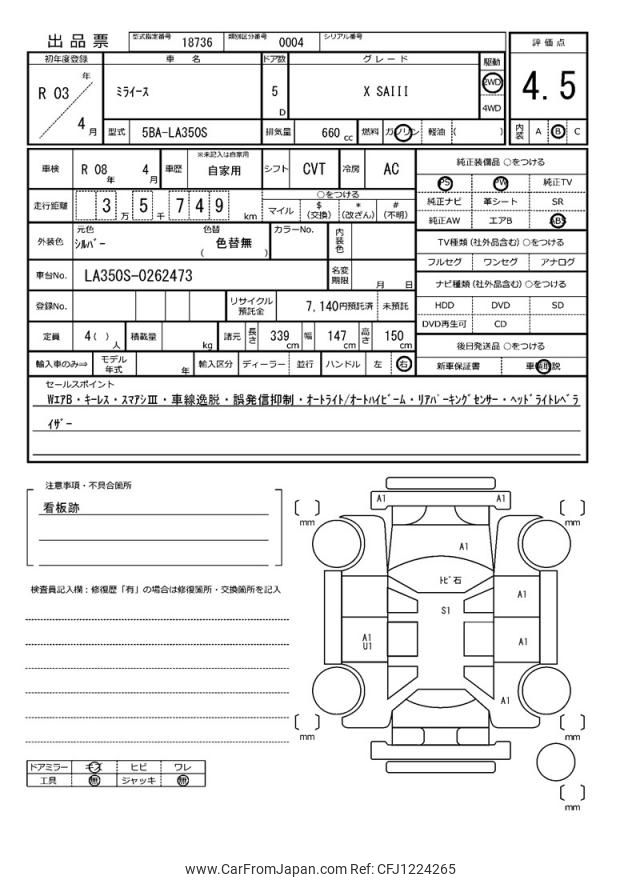 出品票
型式指定番号 18736 類別区分番号 0004 シリアル番号
初年度登録 車名 ドア数 グレード 駆動
R 03 年 4 月
ミライース
5 D
X SAⅢ
2WD
4WD
評価点
4.5
内装 A B C
型式 5BA-LA350S 排気量 660 cc 燃料 ガソリン 軽油 ( )
車検 R 08 年 4 月 車歴 ※未記入は自家用 自家用 シフト CVT 冷房 AC
走行距離 3 5 万 千 7 4 9 km
○をつける
マイル $ (交換) * (改ざん) # (不明)
外装色 元色 シルバー 色替 ( 色替無 ) カラーNo. 内装色
車台No. LA350S-0262473 名変期限 月 日
登録No. リサイクル預託金 7,140円預託済 未預託
定員 4( ) 人 積載量 kg 諸元 長さ 339 cm 幅 147 cm 高さ 150 cm
輸入車のみ⇒ モデル年式 年 輸入区分 ディーラー 並行 ハンドル 左 右
純正装備品 ○をつける
PS PW 純正TV
純正ナビ 革シート SR
純正AW エアB ABS
TV種類 (社外品含む) ○をつける
フルセグ ワンセグ アナログ
ナビ種類 (社外品含む) ○をつける
HDD DVD SD
DVD再生可 CD
後日発送品 ○をつける
新車保証書 車輌取説
セールスポイント
WエアB・キーレス・スマアシⅢ・車線逸脱・誤発信抑制・オートライト/オートハイビーム・リアパーキングセンサー・ヘッドライトレベラ
イザー
注意事項・不具合箇所
看板跡
検査員記入欄:修復歴「有」の場合は修復箇所・交換箇所を記入
ドアミラー キズ ヒビ ワレ
工具 無 ジャッキ 無
A1 A1
[ ] mm [ ] mm
A1
トビ石
S1
A1
A1
U1
A1
A1
[ ] mm [ ] mm
[ ] mm
www.CarFromJapan.com Ref: CFJ1224265